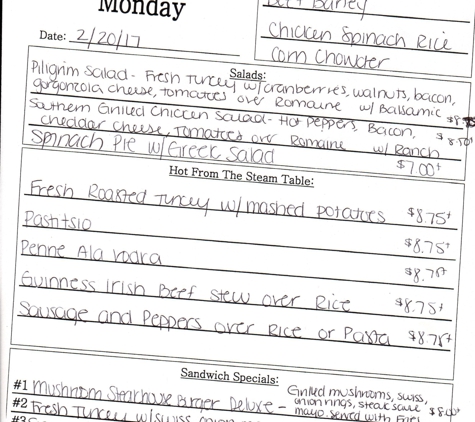 Monday
Date: 2/20/17
Beef Barley
Chicken Spinach Rice
Corn Chowder
Salads:
Piligrim Salad - Fresh Turkey w/cranberries, walnuts, bacon,
gorgonzola cheese, tomatoes over Romaine w/ Balsamic
Southern Grilled Chicken Salad - Hot Peppers, Bacon,
cheddar cheese, Tomatoes over Romaine w/ Ranch $8.50+
Spinach Pie w/Greek Salad $7.00+
Hot From The Steam Table:
Fresh Roasted Turkey w/mashed potatoes $8.75+
Pastitsio $8.75+
Penne Ala vodka $8.75+
Guinness Irish Beef Stew over Rice $8.75+
Sausage and Peppers over Rice or Pasta $8.75+
Sandwich Specials:
#1 Mushroom Steakhouse Burger Deluxe - Grilled mushrooms, swiss,
onion rings, steak sauce $8.00+
#2 Fresh Turkey w/swiss mayo served with Fries